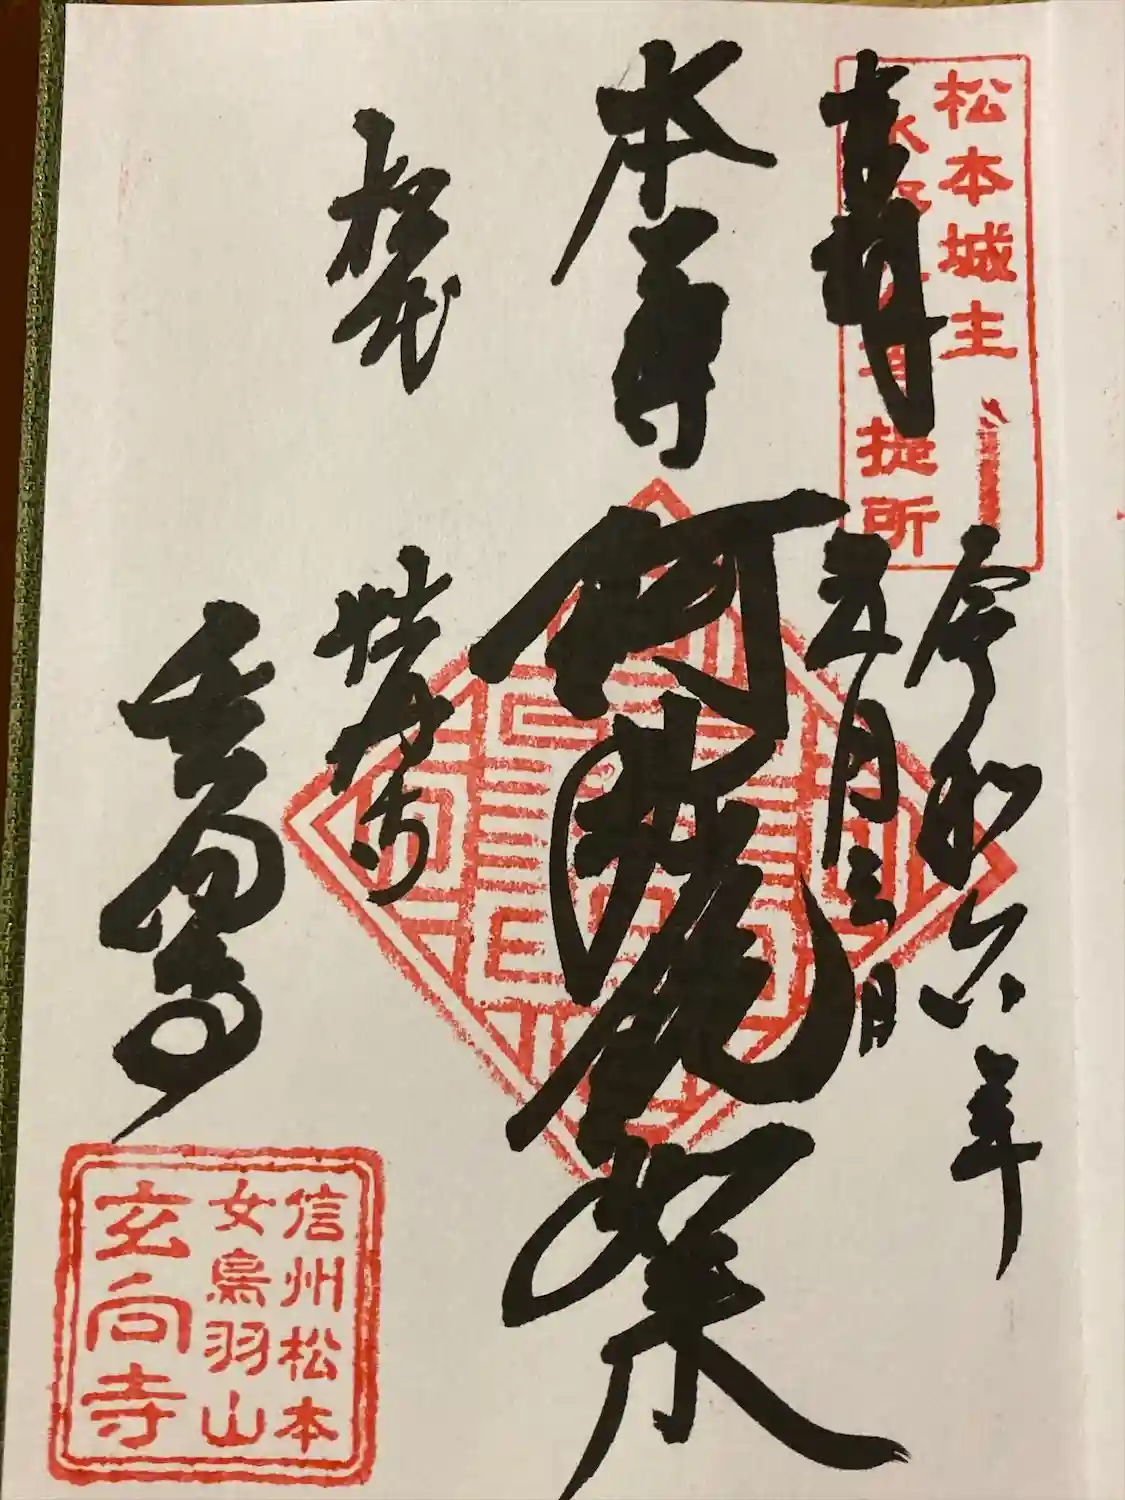 松本城主
水野家菩提所
令和六年
五月三日
本尊 阿弥陀如来
牡丹寺
玄向寺
信州松本
女鳥羽山
玄向寺